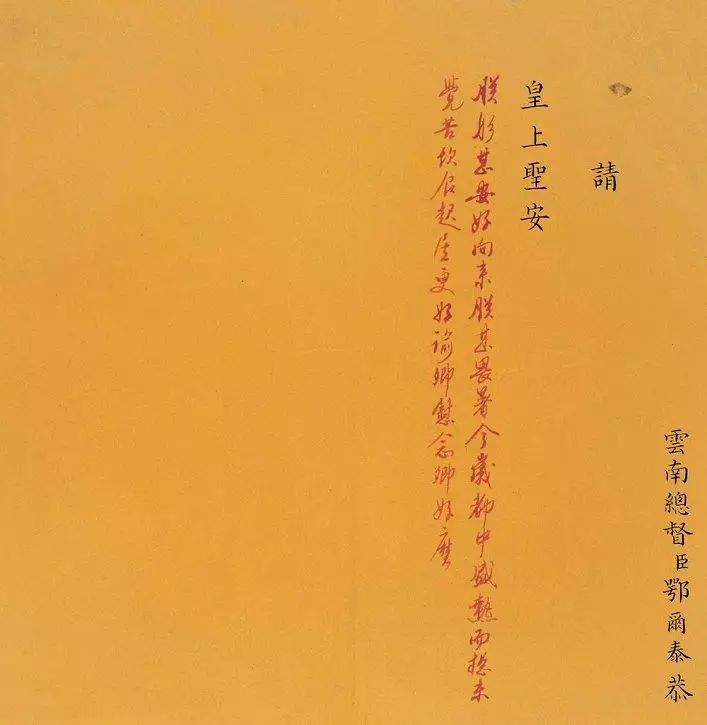 雲南總督臣鄂爾泰恭
請
皇上聖安
朕躬甚安好向來朕甚畏暑今歲都中盛熱而總未
覺苦飲食起居更好諭卿慰念卿好麼